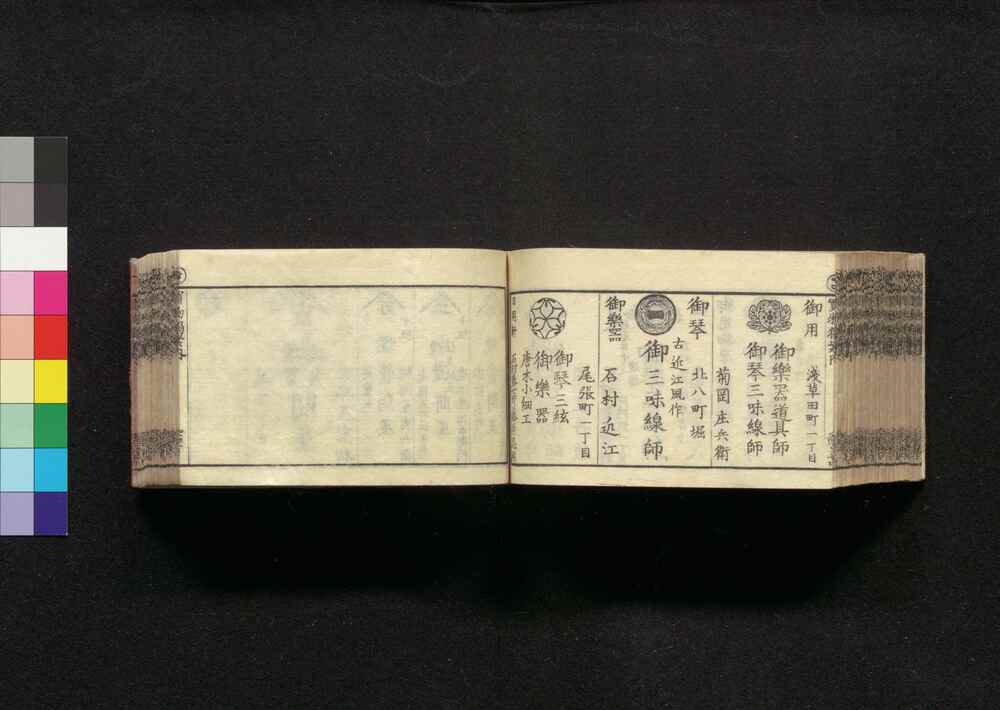 御用 淺草田町一丁目
御樂器道具師
御琴三味線師
菊岡庄兵衛
御琴 北八町堀
古近江風作
御三味線師
御樂器 石村近江
尾張町一丁目
御琴三絃
御樂器
唐木小細工